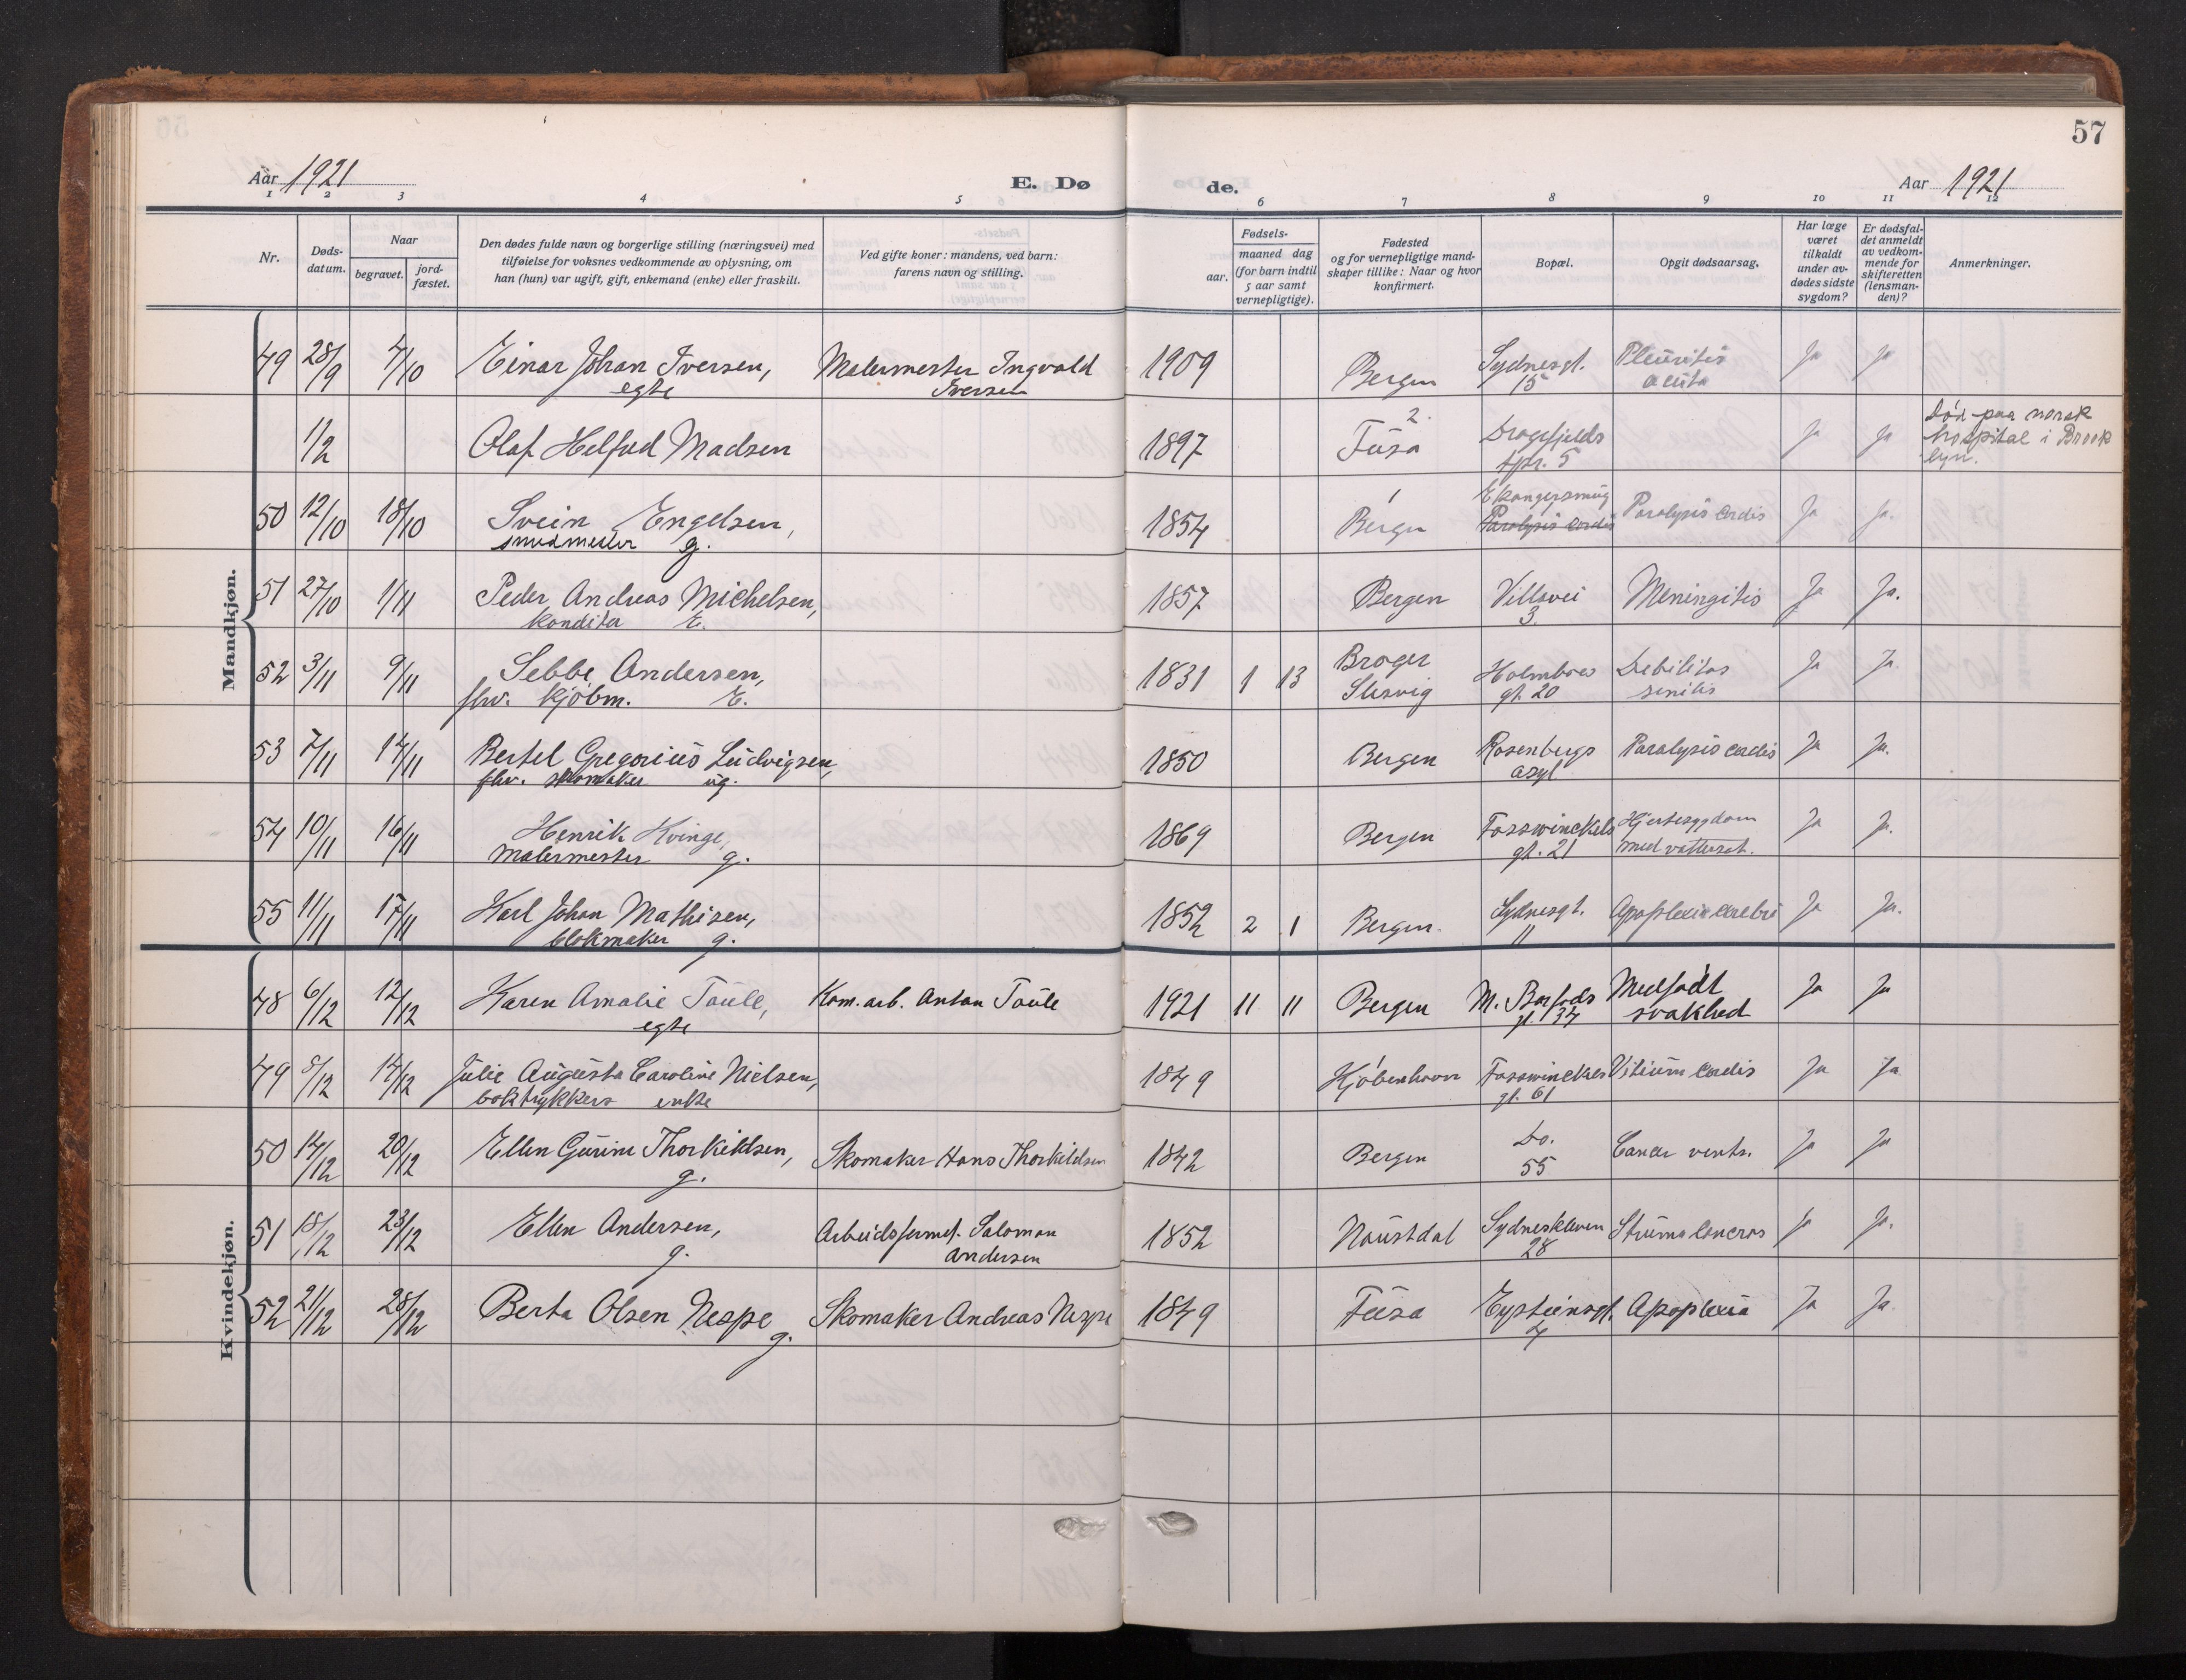 57
Aar 1921
E. Dø
de.
Aar 1921
1 2 3 4 5 6 7 8 9 10 11 12
Nr.
Døds-
datum.
Naar
begravet.
jord-
fæstet.
Den dødes fulde navn og borgerlige stilling (næringsvei) med
tilføielse for voksnes vedkommende av oplysning, om
han (hun) var ugift, gift, enkemand (enke) eller fraskilt.
Ved gifte koner: mandens, ved barn:
farens navn og stilling.
Fødsels-
aar.
maaned dag
(for barn indtil
5 aar samt
vernepligtige).
Fødested
og for vernepligtige mand-
skaper tillike: Naar og hvor
konfirmert.
Bopæl.
Opgit dødsaarsag.
Har læge
været
tilkaldt
under av-
dødes sidste
sygdom?
Er dødsfal-
det anmeldt
av vedkom-
mende for
skifteretten
(lensman-
den)?
Anmerkninger.
Mandkjøn.
49 28/9 4/10 Einar Johan Iversen, Malermester Ingvald 1909 Bergen Sydnesgt. Pleuritis Ja Ja
egte Iversen 15 acuta
1/2 Olaf Helfud Madsen 1897 2. Fusa Dragefjelds Ja Ja Død paa norsk
tpr. 5 hospital i Brook
lyn.
50 12/10 18/10 Svein Engelsen, 1854 Bergen Ekangersmug Paralysis cordis Ja Ja.
smedmester g. Paralysis cordis
51 27/10 1/11 Peder Andreas Michelsen, 1857 Bergen Villavei Meningitis Ja Ja.
konditor E. 3.
52 3/11 9/11 Sebbe Andersen, 1831 1 13 Broger Holmboes Debilitas Ja Ja.
fhv. kjøbm. E. Slesvig gt. 20 senilis
53 7/11 14/11 Bertel Gregorius Ludvigsen, 1850 Bergen Rosenbergs Paralysis cordis Ja Ja.
fhv. skomaker ug. asyl
54 10/11 16/11 Henrik Kvinge, 1869 Bergen Fosswinckels Hjertesygdom Ja Ja.
Malermester g. gt. 21 med vattersot.
55 11/11 17/11 Karl Johan Mathisen, 1852 2 1 Bergen. Sydnesgt. Apoplexia cerebri Ja Ja.
blokmaker g. 11
Kvindekjøn.
48 6/12 12/12 Karen Amalie Taule, Kom. arb. Anton Taule 1921 11 11 Bergen M. Barfods Medfødt Ja Ja
egte gt. 34 svakhed
49 8/12 14/12 Julie Augusta Caroline Nielsen, 1849 Kjøbenhavn Fosswinckels Vitium cordis Ja Ja
boktrykkers enke gt. 61
50 14/12 20/12 Ellen Gurine Thorkildsen, Skomaker Hans Thorkildsen 1842 Bergen Do. Cancer ventr. Ja Ja
g. 55
51 18/12 23/12 Ellen Andersen, Arbeidsformd. Salomon 1852 Naustdal Sydneskleven Struma cancros Ja Ja.
g. Andersen 28
52 21/12 28/12 Berta Olsen Nespe Skomaker Andreas Nespe 1849 Fusa Eysteinsgt. Apoplexia Ja Ja
g. 4